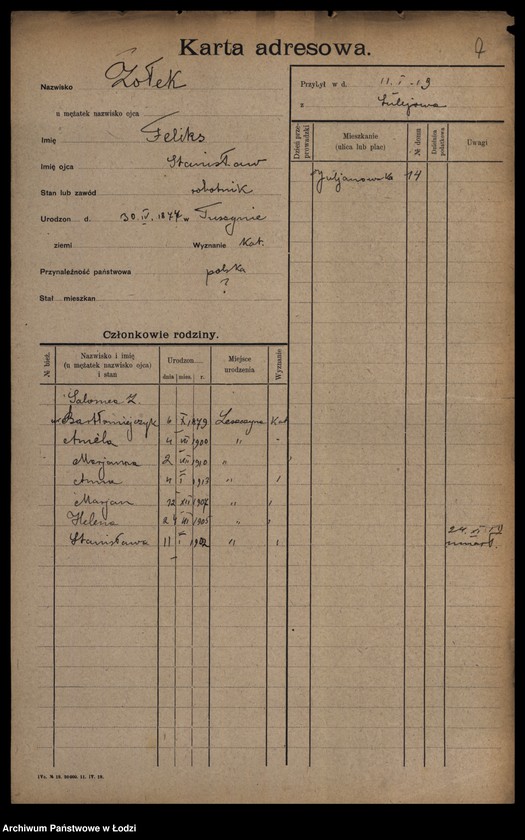 Karta adresowa.
Nazwisko Żołek
u mężatek nazwisko ojca
Imię Feliks
Imię ojca Stanisław
Stan lub zawód robotnik
Urodzon d. 30.IV.1877 w Tuszynie
ziemi Wyznanie Kat.
Przynależność państwowa polska
?
Stał mieszkan
Przybył w d. 11.I-19
z Sulejowa
Dzień przeprowadzki Mieszkanie (ulica lub plac) № domu Dzielnica podatkowa Uwagi
Juljanowska 14
Członkowie rodziny.
№ bież. Nazwisko i imię (u mężatek nazwisko ojca) i stan Urodzon Miejsce urodzenia Wyznanie
dnia mies. r.
Salomea Ż.
Bartłomiejczyk 6 X 1879 Kat
Amela 4 VII 1900 "
Marjanna 2 VII 1910 "
Anna 4 I 1913 "
Marjan 22 XII 1907 "
Helena 24 III 1905 "
Stanisława 11 I 1902 "
24.XI.19
umarł.
IVa. № 18. 50000. 11. IV. 19.
Archiwum Państwowe w Łodzi